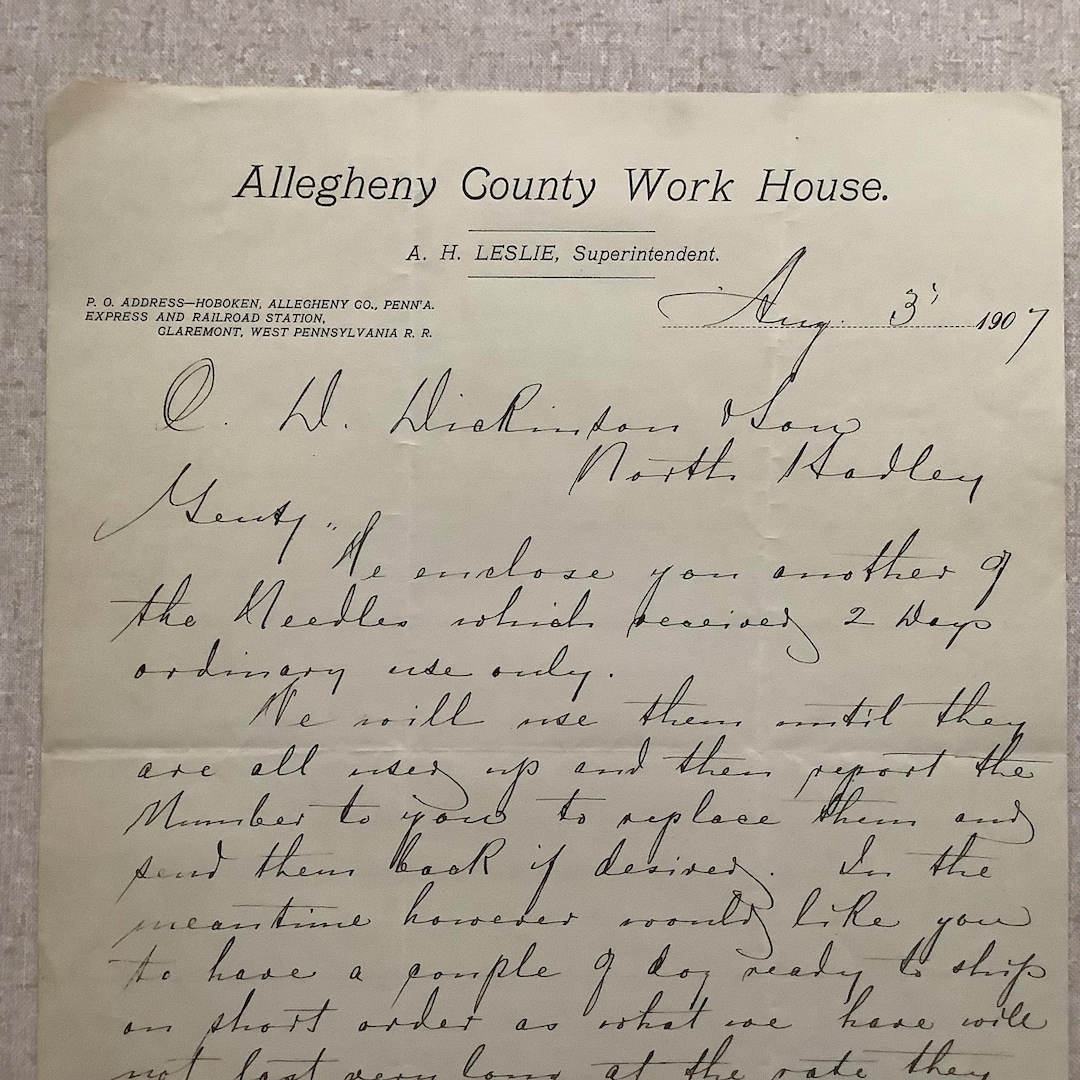 Allegheny County Work House.
A. H. LESLIE, Superintendent.
P. O. ADDRESS—HOBOKEN, ALLEGHENY CO., PENN'A.
EXPRESS AND RAILROAD STATION,
CLAREMONT, WEST PENNSYLVANIA R. R.
Aug. 3' 1907
C. D. Dickinson & Son
North Hadley
Gents,"
We enclose you another of
the Needles which received 2 Days
ordinary use only.
We will use them until they
are all used up and then report the
Number to you to replace them and
send them back if desired. In the
meantime however would like you
to have a couple of doz ready to ship
on short order as what we have will
not last very long at the rate they